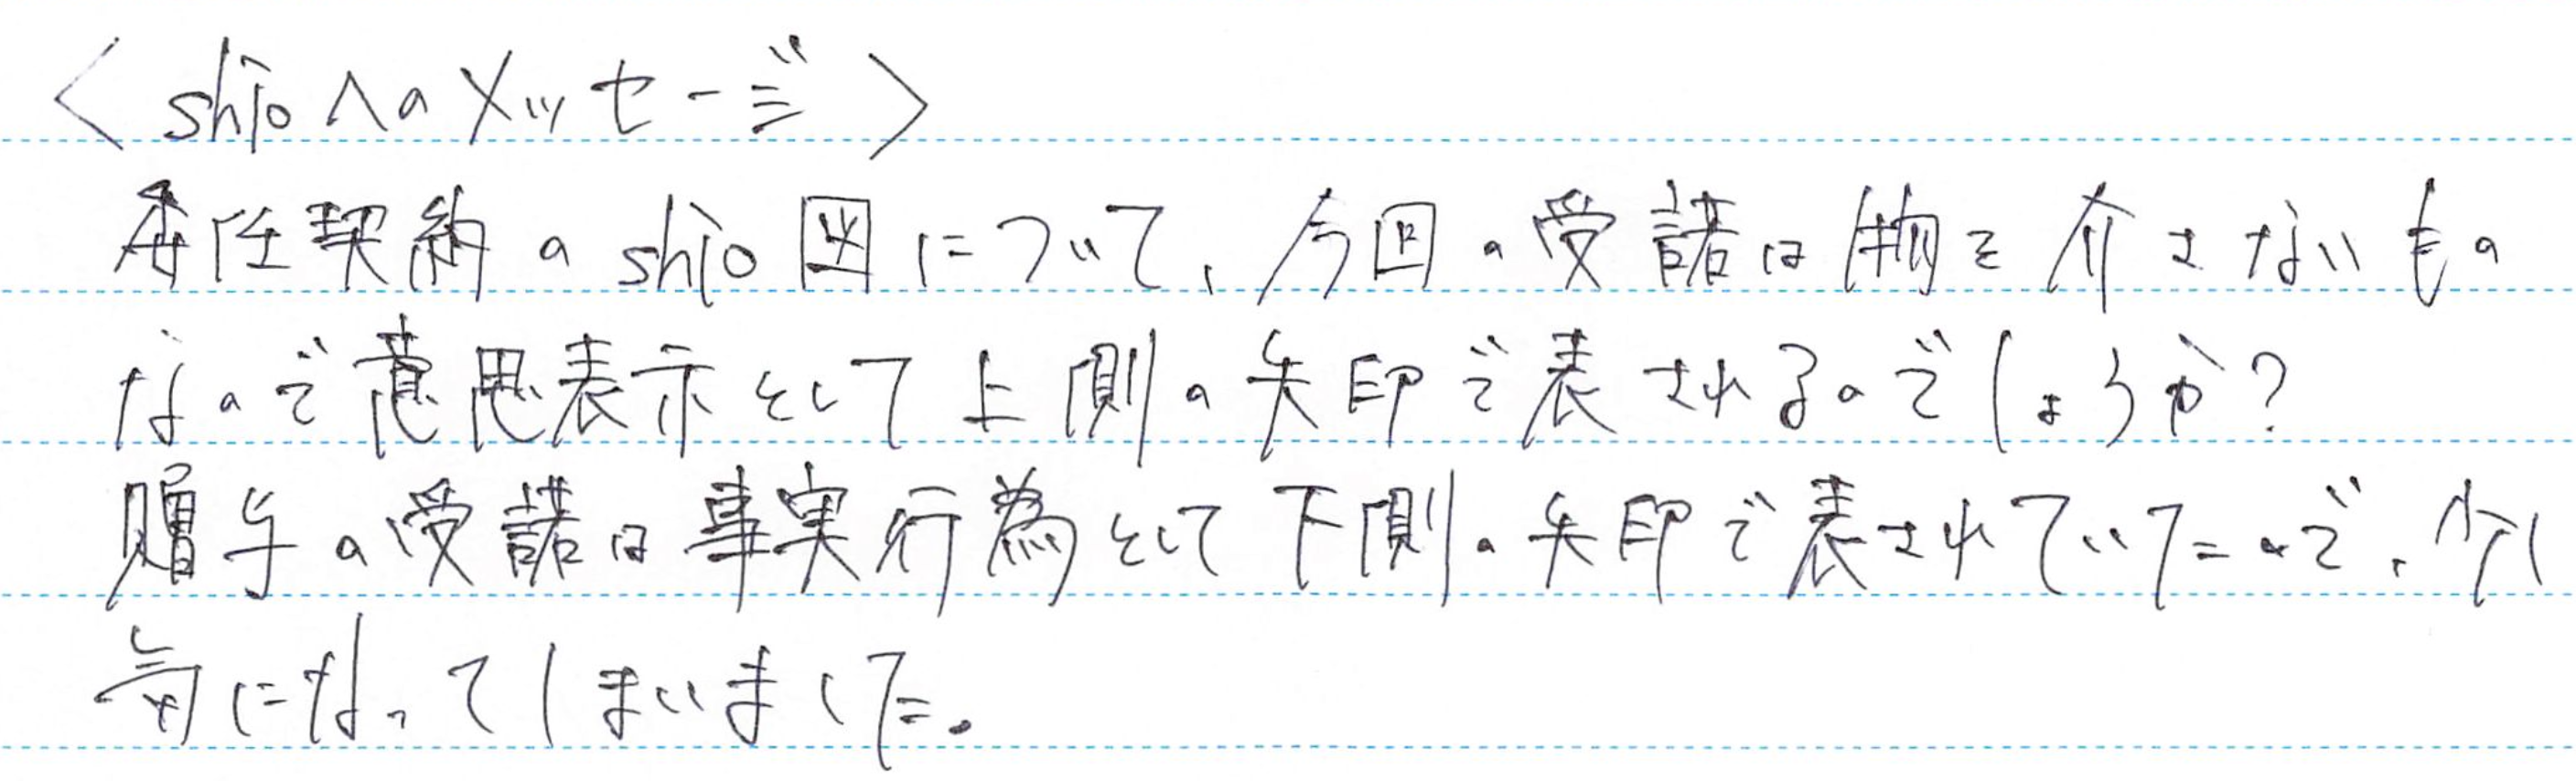 〈shioへのメッセージ〉
委任契約のshio図について、今回の受諾は物を介さないもの
なので意思表示として上側の矢印で表されるのでしょうか?
贈与の受諾は事実行為として下側の矢印で表されていたので、少し
気になってしまいました。